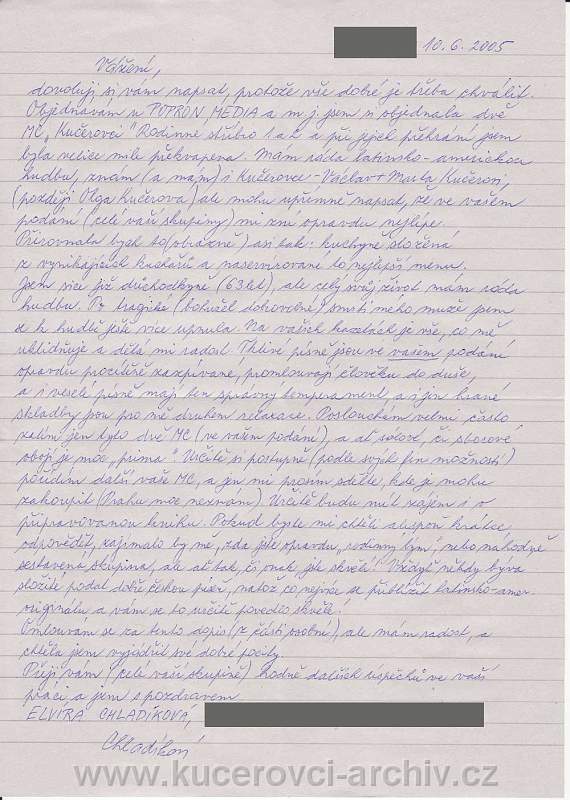 10.6.2005
Vážení,
dovoluji si vám napsat, protože vše dobré je třeba chválit.
Objednávám u POPRON MEDIA a m.j. jsem si objednala dvě
MC „Kučerovci" Rodinné stříbro 1 a 2 a při jejich přehrání jsem
byla velice mile překvapena. Mám ráda latinsko-americkou
hudbu, znám (a mám) i Kučerovce - Václav + Marta Kučerovi,
(později Olga Kučerová) ale mohu upřímně napsat, že ve vašem
podání (celé vaší skupiny) mi zní opravdu nejlépe.
Přirovnala bych to (obrazně) asi tak: kuchyně složená
z vynikajících kuchařů a naservírované to nejlepší menu.
Jsem sice již důchodkyně (63 let), ale celý svůj život mám ráda
hudbu. Po tragické (bohužel dobrovolné) smrti mého muže jsem
se k hudbě ještě více upnula. Na vašich kazetách je vše, co mě
uklidňuje a dělá mi radost. Tklivé písně jsou ve vašem podání
opravdu procítěně zazpívané, promlouvají člověku do duše,
a i veselé písně mají ten správný temperament, a i jen hrané
skladby jsou pro mě druhem relaxace. Poslouchám velmi často,
zatím jen tyto dvě MC (ve vašem podání), a ať sólové, či sborové
obojí je moc „prima". Určitě si postupně (podle svých fin. možností)
pořídím další vaše MC, a jen mi prosím sdělte, kde je mohu
zakoupit (Prahu moc neznám). Určitě budu mít zájem i o
připravovanou knihu. Pokud byste mi chtěli alespoň krátce
odpovědět, zajímalo by mě, zda jste opravdu „rodinný tým" nebo náhodně
sestavená skupina, ale ať tak, či onak jste skvělí! Vždyť někdy bývá
složité podat dobře českou píseň, natož co nejvíce se přiblížit latinsko-amer.
originálu a vám se to určitě povedlo skvěle!
Omlouvám se za tento dopis (z části osobní), ale mám radost, a
chtěla jsem vyjádřit své dobré pocity.
Přeji vám (celé vaší skupině) hodně dalších úspěchů ve vaší
práci a jsem s pozdravem
ELVÍRA CHLADÍKOVÁ,
Chladíková
www.kucerovci-archiv.cz